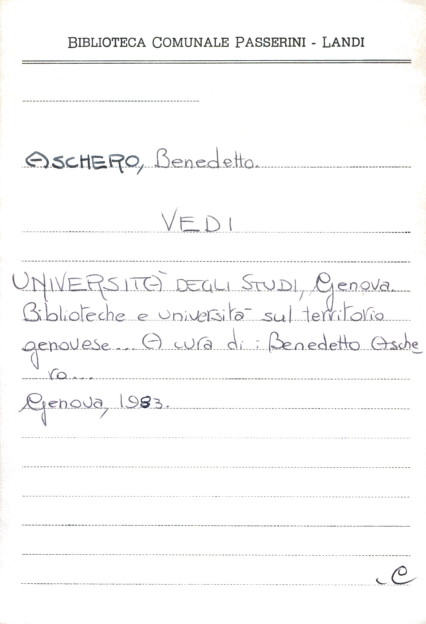 BIBLIOTECA COMUNALE PASSERINI - LANDI
ASCHERO, Benedetto.
VEDI
UNIVERSITÀ DEGLI STUDI, Genova.
Biblioteche e università sul territorio
genovese... A cura di : Benedetto Asche
ro...
Genova, 1983.
C